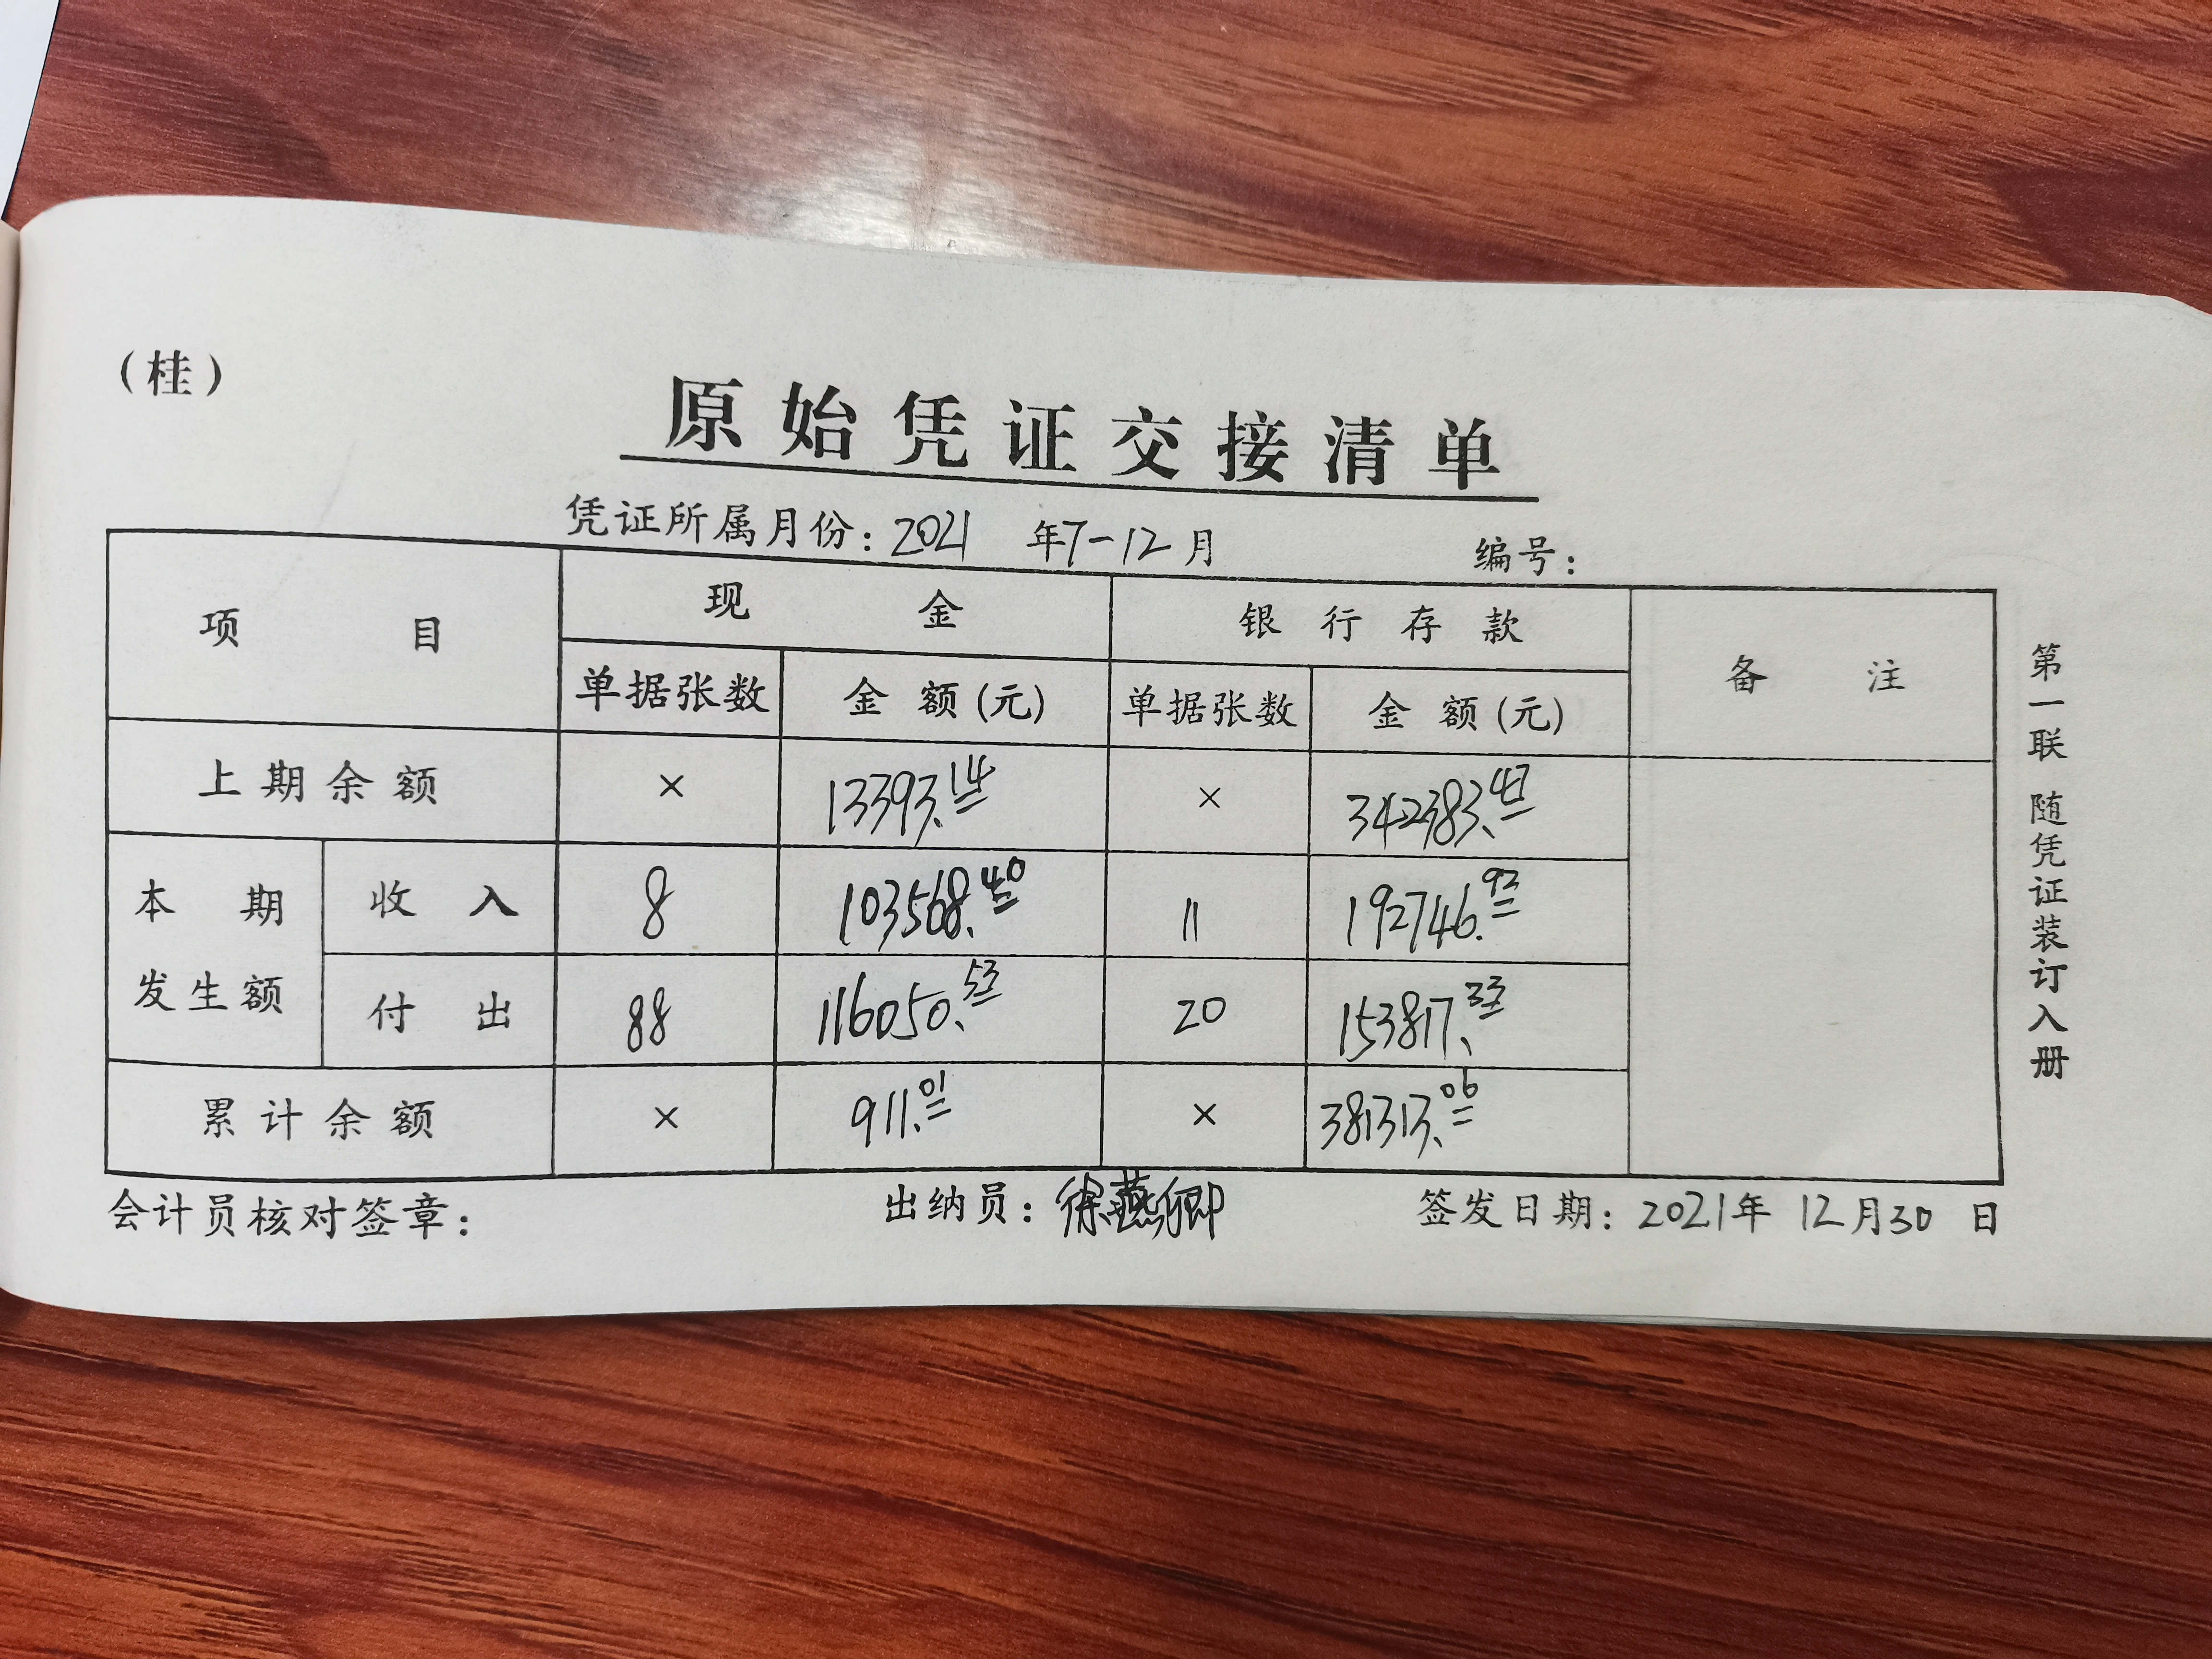 （桂）
原始凭证交接清单
凭证所属月份：2021 年7-12月 编号：
项目 现金 银行存款 备注
单据张数 金额(元) 单据张数 金额(元)
上期余额 × 13393.14 × 342383.47
本期发生额 收入 8 103568.40 11 192746.92
付出 88 116050.53 20 153817.33
累计余额 × 911.01 × 381313.06
会计员核对签章： 出纳员：徐燕卿 签发日期：2021年12月30日
第一联 随凭证装订入册